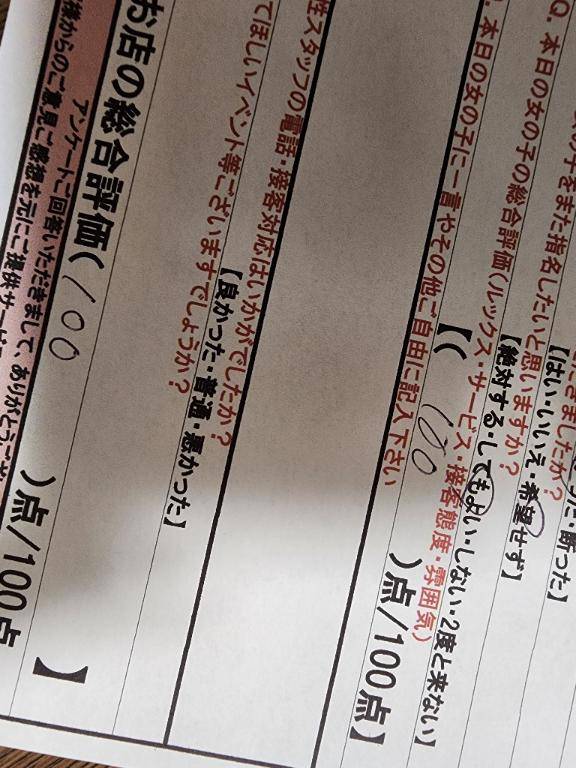 きました
た・断った】
をまた指名したいと思いますか？
【はい・いいえ・希望せず】
Q. 本日の女の子の総合評価(ルックス・サービス・接客態度・雰囲気)
【絶対する・してもよい・しない・2度と来ない】
【( 100 )点/100点】
. 本日の女の子に一言やその他ご自由に記入下さい
性スタッフの電話・接客対応はいかがでしたか？
【良かった・普通・悪かった】
てほしいイベント等ございますでしょうか？
お店の総合評価( 100 )点/100点
】
アンケートご回答いただきまして、ありがとうござ
様からのご意見ご感想を元にご提供サービ